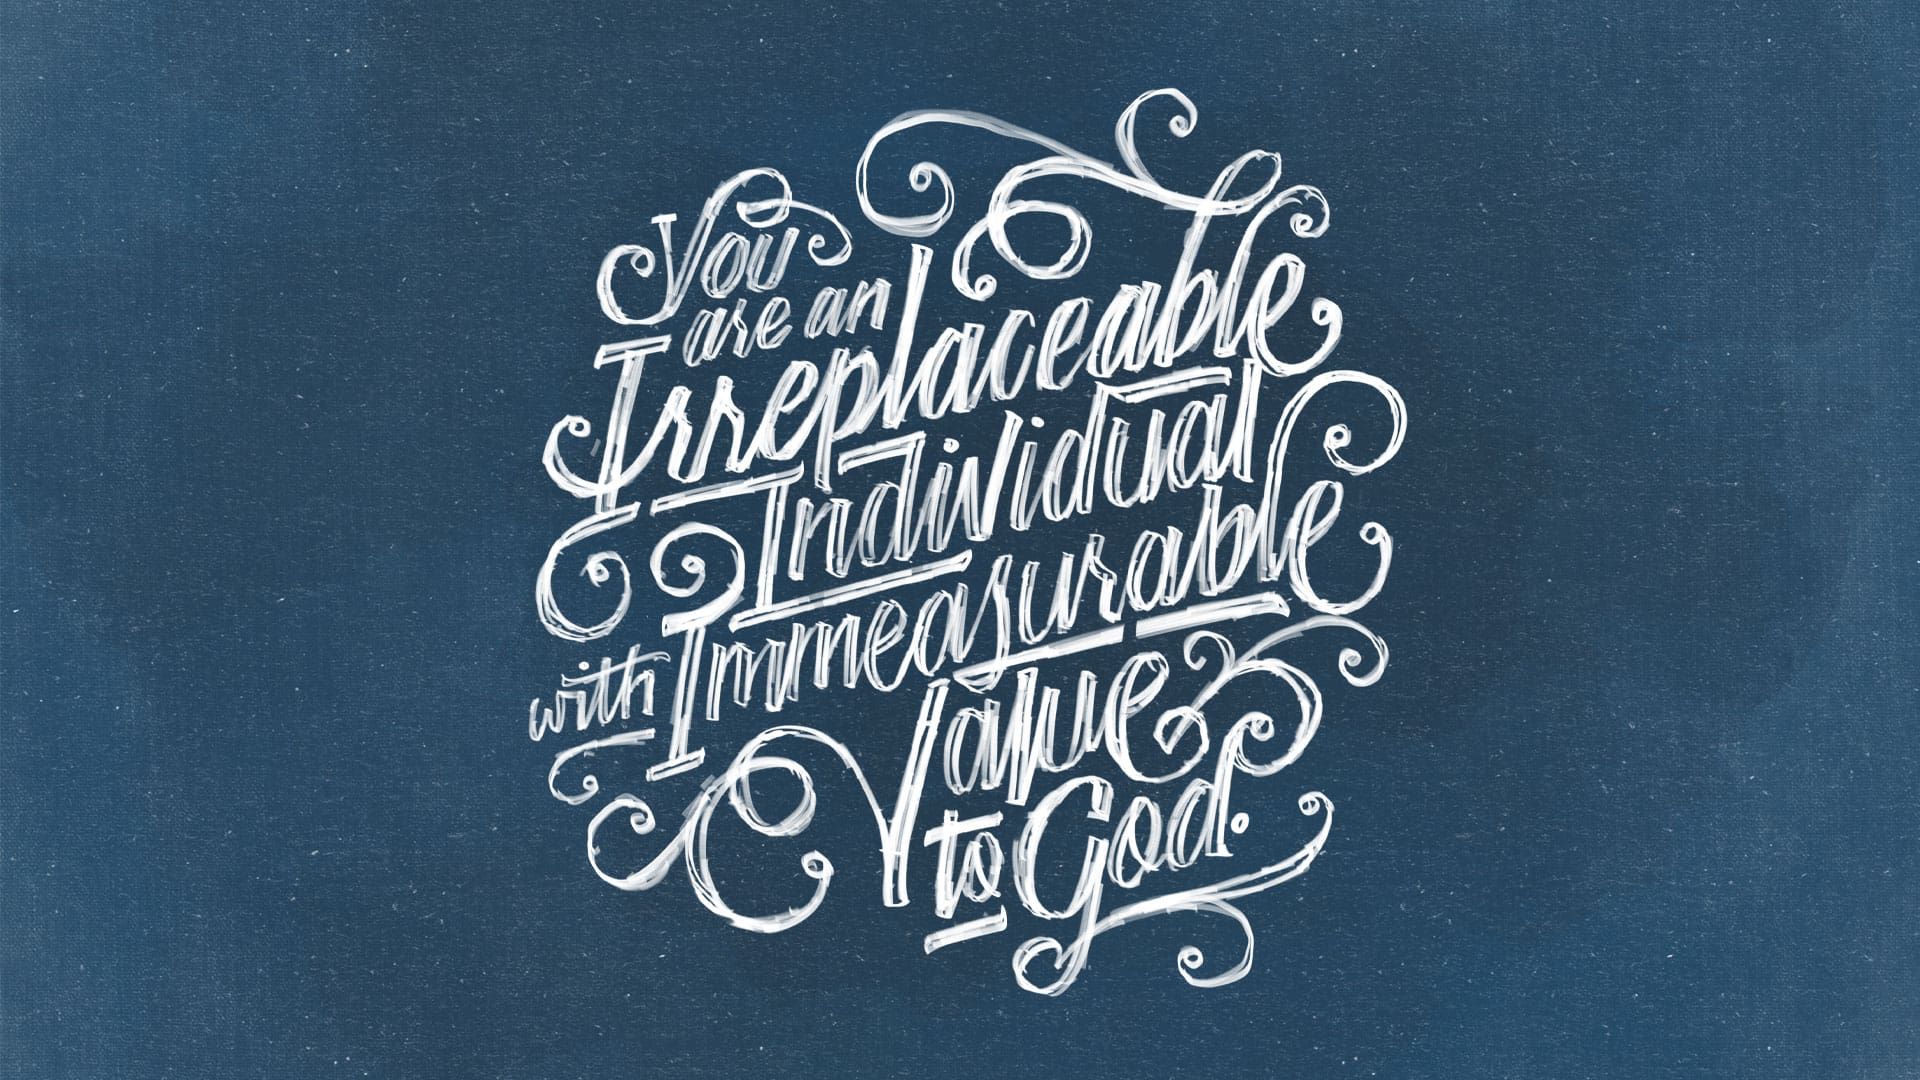 You
are an
Irreplaceable
Individual
with Immeasurable
Value
to God.